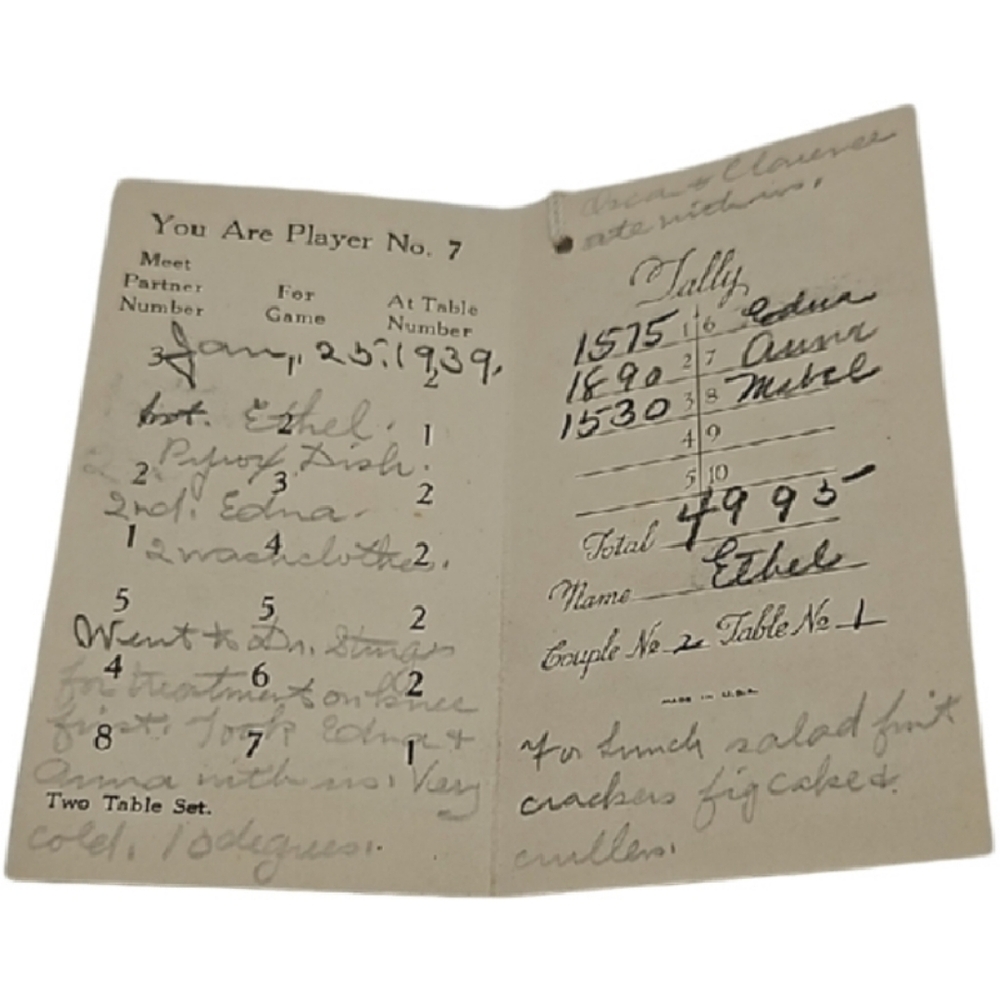 You Are Player No. 7
Meet
Partner
Number
For
Game
At Table
Number
3 2
Jan, 25, 1939.
1st. Ethel.
2 1
Pyrex Dish.
2 3 2
2nd. Edna.
1 4 2
2 washclothes.
5 5 2
Went to Dr. Sturges
4 6 2
for treatment on knee
first. Took Edna +
8 7 1
Anna with us. Very
Two Table Set.
cold. 10 degrees.
+ Clarence
ate with us.
Tally
1575 1 6 Edna
1890 2 7 Anna
1530 3 8 Mabel
4 9
5 10
Total 4995
Name Ethel
Couple No 2 Table No 1
MADE IN U.S.A.
For Lunch salad fruit
crackers fig cake &
crullers.